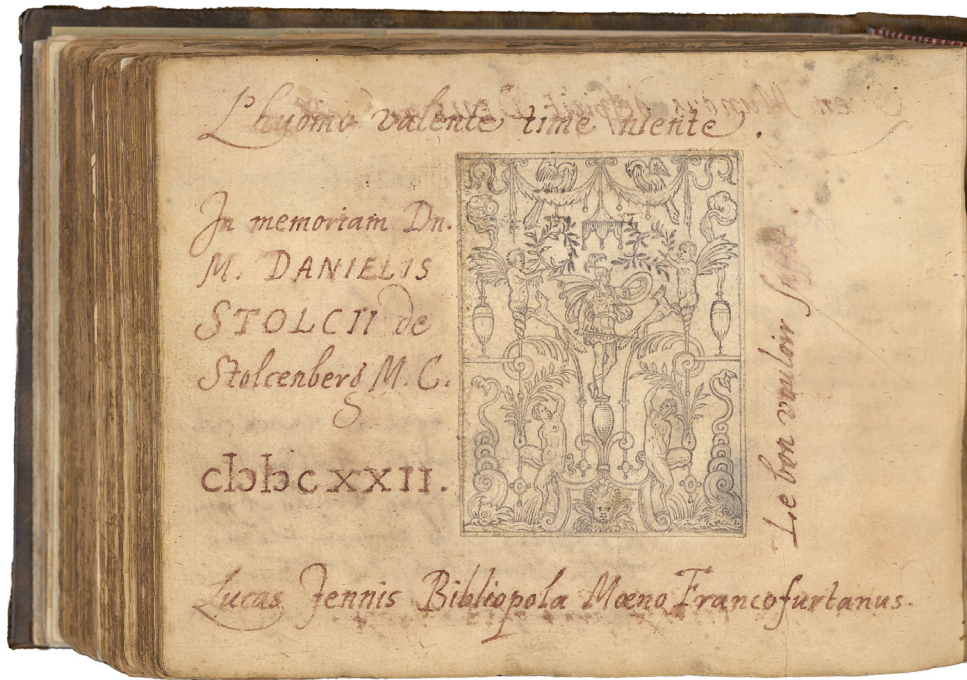 L'huomo valente time niente.
In memoriam Dn.
M. DANIELIS
STOLCII de
Stolcenberg M. C.
cIɔIɔcxxII.
Le bon vouloir suffit
Lucas Jennis Bibliopola Mœno Francofurtanus.